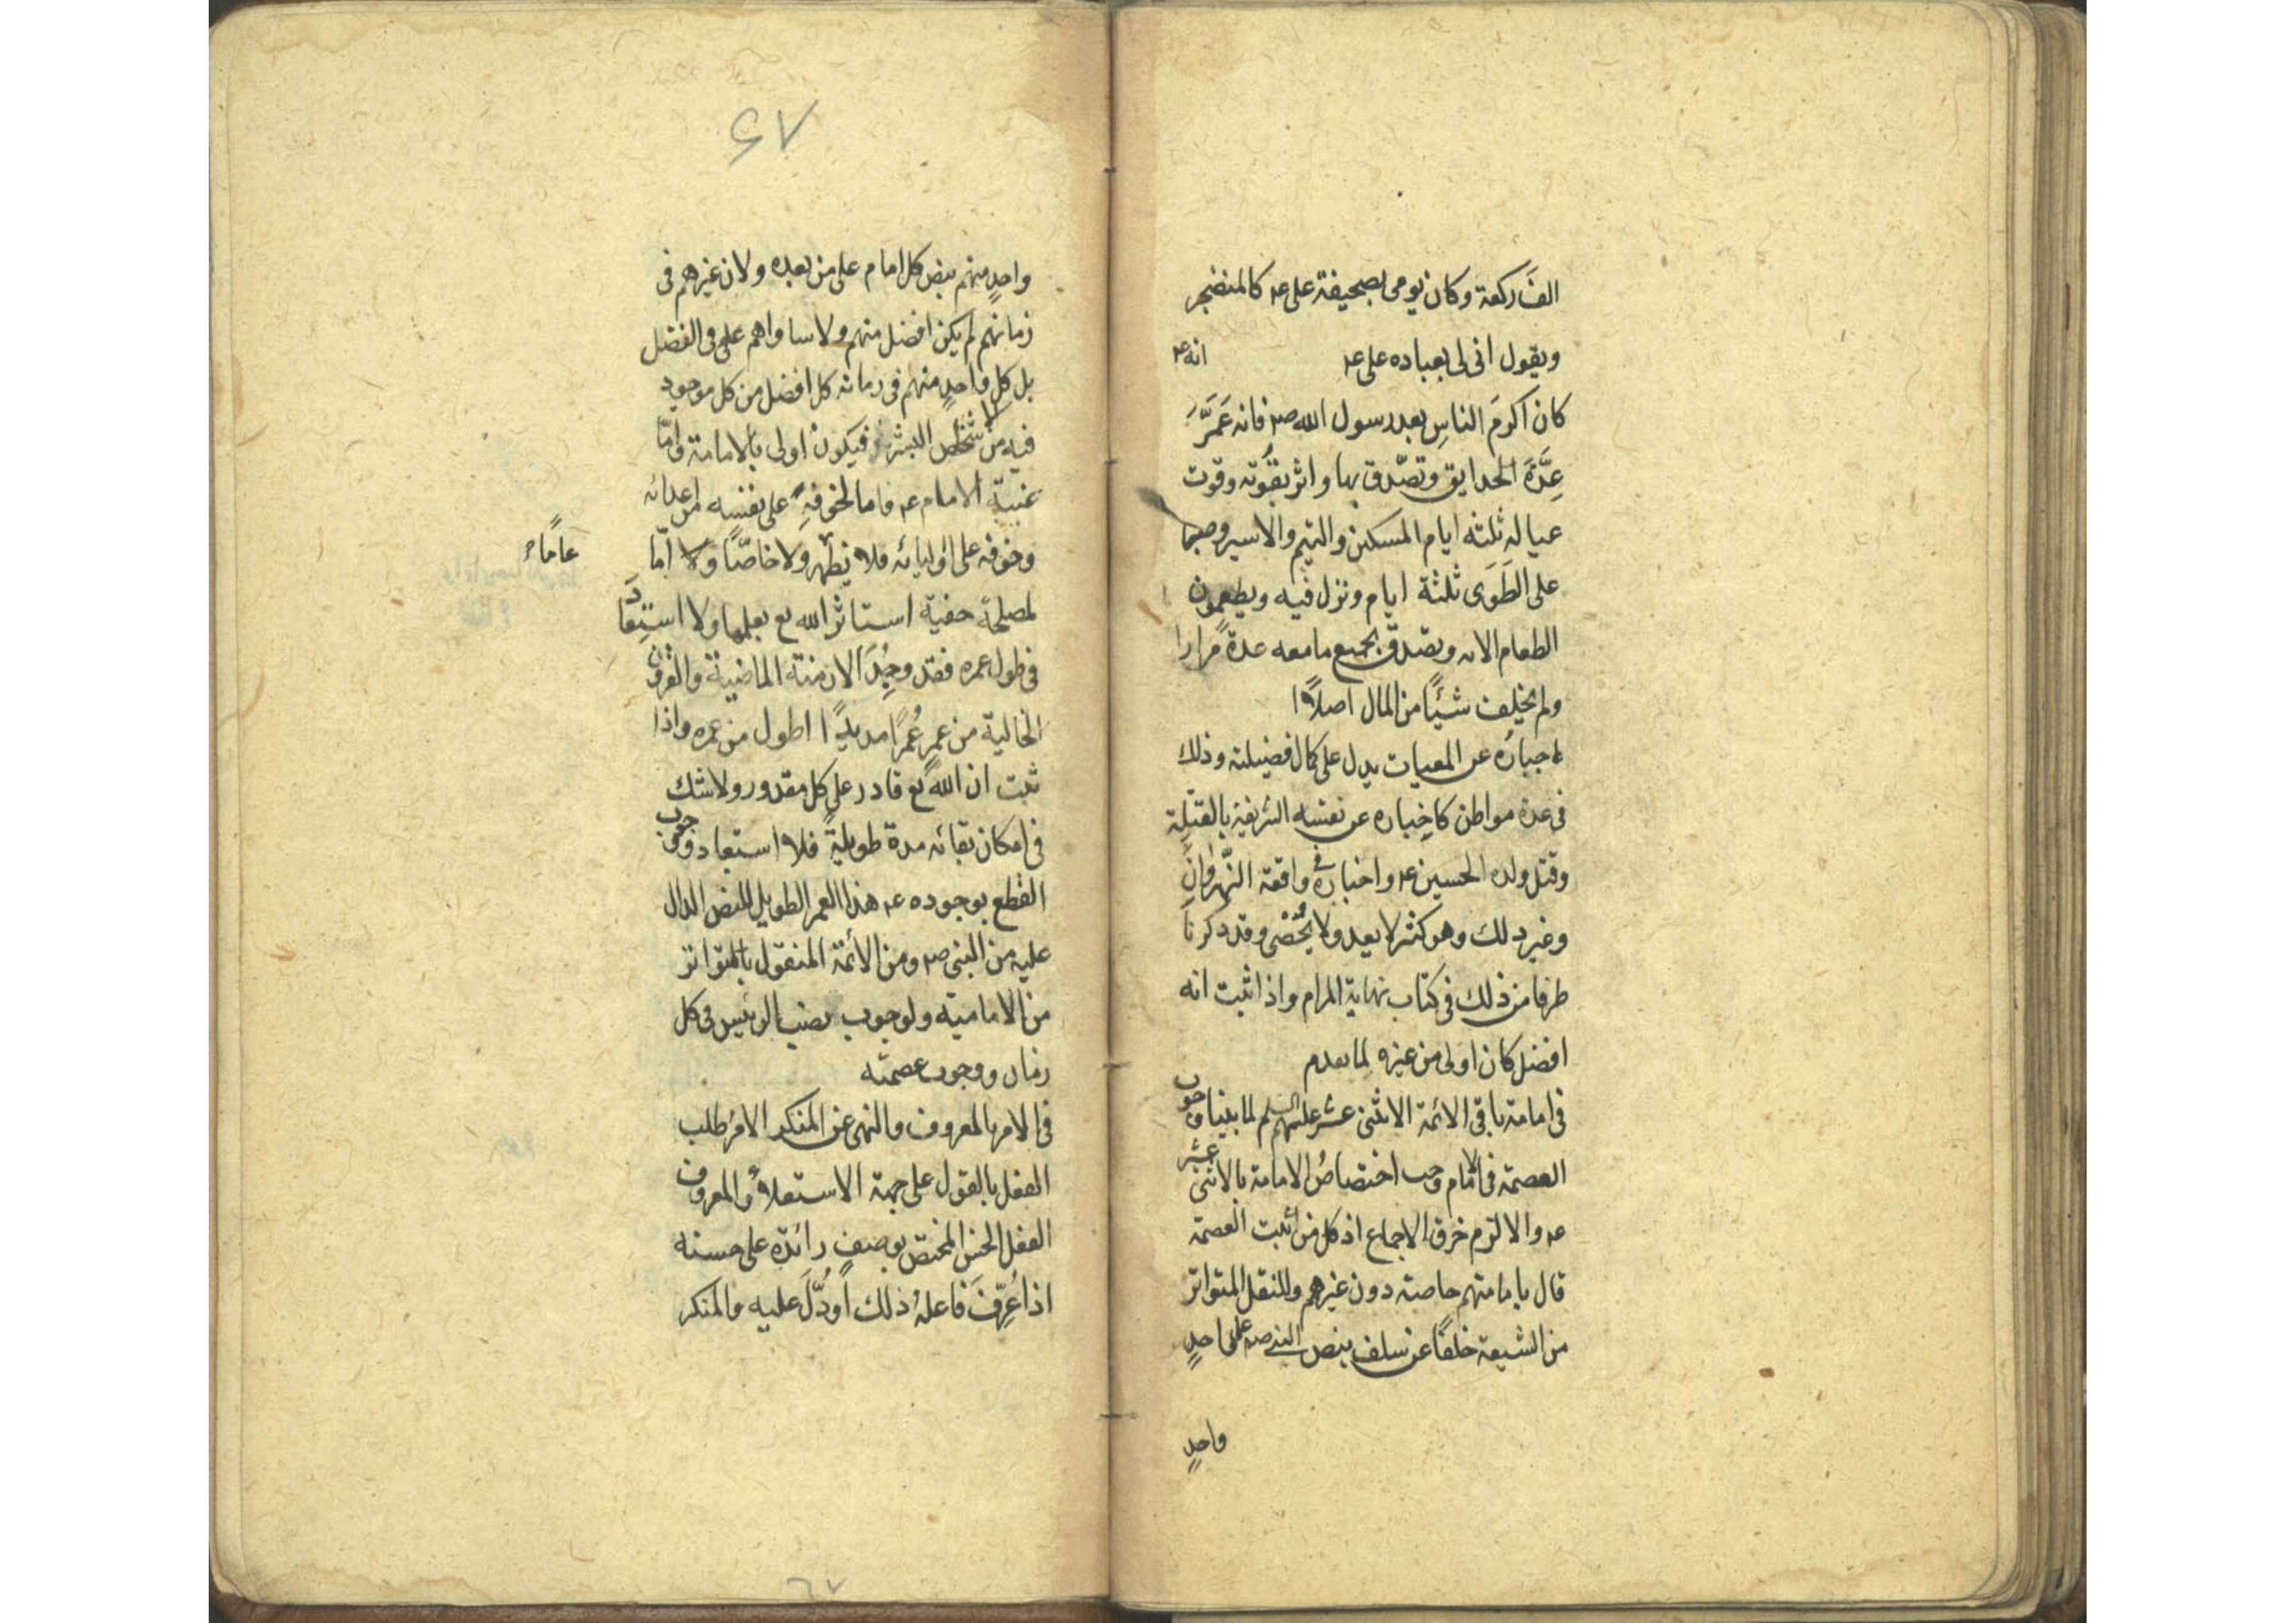 الفَ ركعة وكان يومى بصحيفة على عہ كالمنضجر
ويقول انى لى بعباده على عہ انه عہ
كان اكرمَ الناسِ بعد رسول الله صہ فانه عَمَّرَ
عِدَّةَ الحدايق وتصّدق بها واثر بقُوته وقوت
عياله ثلثه ايام المسكين واليتيم والاسير وصبر
على الطَوَى ثلثة ايام ونزل فيه ويطعمون
الطعام الاىه وتصّدق بجميع مامعه عدة مرارا
ولم يخلِف شيًا من المال اصلاً
اخبارُه عن المغيبات يدل على كمال فضيلته وذلك
فى عدة مواطن كاخِباره عن نفسه الشريفة بالقتلِة
وقتل ولده الحسين عہ واخباره فى واقعة النَّهروانِ
وغير ذلك وهو كثير لا يعد ولا يُحصٰى وقد ذكرنا
طرفا من ذلك فى كتاب نهاية المرام واذا ثبت انه
افضل كان اولى من غيره لما تقدم
فى امامة باقى الائمة الاثنى عشر عليهم السلم لما بينا وجوب
العصمة فى الامام وجب اختصاصُ الامامة بالاثنى عشر
عہ والا لزم خرق الاجماع اذ كل من اثبت العصمة
قال بامامتهم خاصة دون غيرهم وللنقل المتواتر
من الشيعة خلفًا عن سلف بنص النبى صہ على واحدٍ
واحدٍ
٦٧
واحدٍ منهم بنص كل امام على من بعده ولان غيرهم فى
زمانهم لم يكن افضل منهم ولا ساواهم على فى الفضل
بل كل واحدٍ منهم فى زمانه كل افضل من كل موجود
فيه من شخص البشر فيكون اولى بالامامة وامّا
غيبة الامام عہ فاما لخوفهِ على نفسه من اعدائه
وخوفه على اوليائه فلا يظهر ولا خاصًّا ولا امّا
عامًا
لمصلحة خفية استاثر الله تع بعلمها ولا استبعاد
فى طول عمره فقد وجِدَ الازمنة الماضية والقرون
الخالية من عمر عُمرًا مديدًا اطول من عمره واذا
ثبت ان الله تع قادر على كل مقدور ولا شك
فى امكان بقائه مدة طويلةً فلا استبعاد ووجوب
القطع بوجوده عہ هذا العمر الطويل للنص الدال
عليه من النبى صہ ومن الأئمة المنقول بالتواتر
من الامامية ولوجوب نصب الرئيس فى كل
زمان ووجوب عصمته
فى الامر بالمعروف والنهى عن المنكر الامرُ طلب
الفعل بالقول على جهة الاستعلاء والمعروف
الفعل الحسن المختص بوصفٍ زائدة على حسنه
اذا عُرِّفَ فاعلهُ ذلك او دُلَّ عليه والمنكر
٦٧